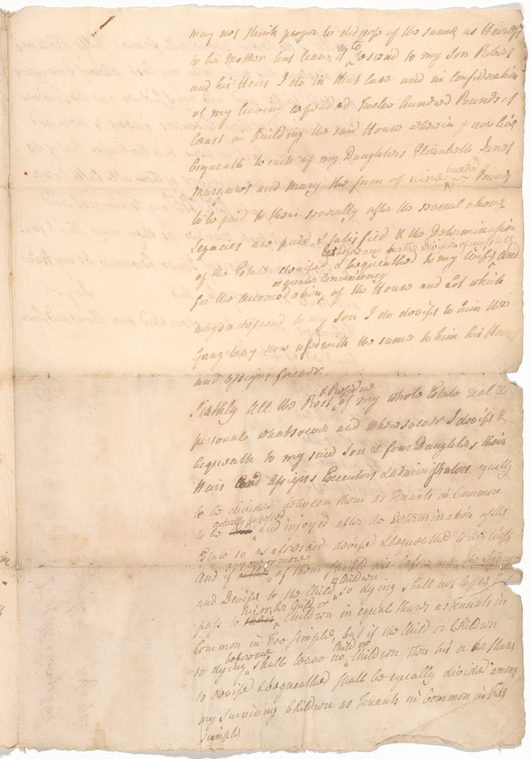 may not think proper to dispose of the same as
to be mother but leave it to descend to my Son Robert
and his Heirs I do in that case and in consideration
of my having expended Twelve hundred Pounds of
in Building the said House wherein I now live
bequeath to each of my Daughters Elizabeth Janet
Margaret and Mary the sum of nine hundred Pounds
to be paid to them severally after the several above
Legacies are paid & satisfied & the Determination
of the Estate devised & bequeathed to my Wife And
or quiet conveniency
for the accomodation of the House and Lot which
may so descend to my Son I do devise to him the
Gang way now used with the same to him his Heirs
and assigns forever.
& Residue
Sixthly All the Rest of my whole Estate real &
personal whatsoever and wheresoever I devise &
bequeath to my said Son & four Daughters their
Heirs and Assigns Executors & Administrators equally
to be divided between them as Tenants in Common
to be and injoyed after the Determination of the
Estate so as aforesaid devised & bequeathed to my Wife
or more
And if of them
and Devise to the Child or Children so dying shall not
his or her Child or
pass to Children in equal shares as Tenants in
Common in Fee Simple, but if no Child or Children
Child or
so dying shall leave no Children then his or her Share
so devised & bequeathed shall be equally divided among
my surviving Children as Tenants in Common in Fee
simple